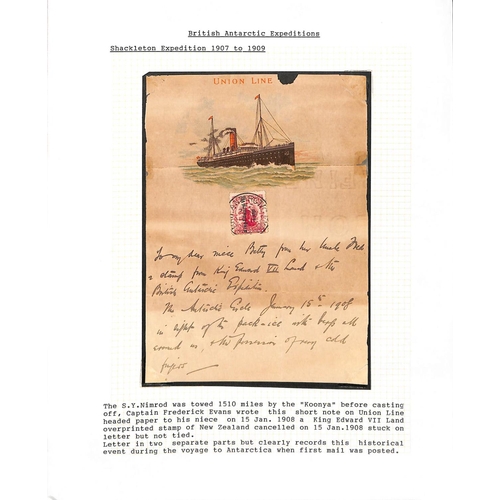 British Antarctic Expeditions
Shackleton Expedition 1907 to 1909
UNION LINE
To my dear niece Betty from her Uncle Fred
a stamp from King Edward VII Land & the
British Antarctic Expedition.
The Antarctic Circle January 15th 1908
in sight of the pack-ice with bergs all
around us, & the
of very cold
The S.Y.Nimrod was towed 1510 miles by the "Koonya" before casting
off, Captain Frederick Evans wrote this short note on Union Line
headed paper to his niece on 15 Jan. 1908 a King Edward VII Land
overprinted stamp of New Zealand cancelled on 15 Jan.1908 stuck on
letter but not tied.
Letter in two separate parts but clearly records this historical
event during the voyage to Antarctica when first mail was posted.